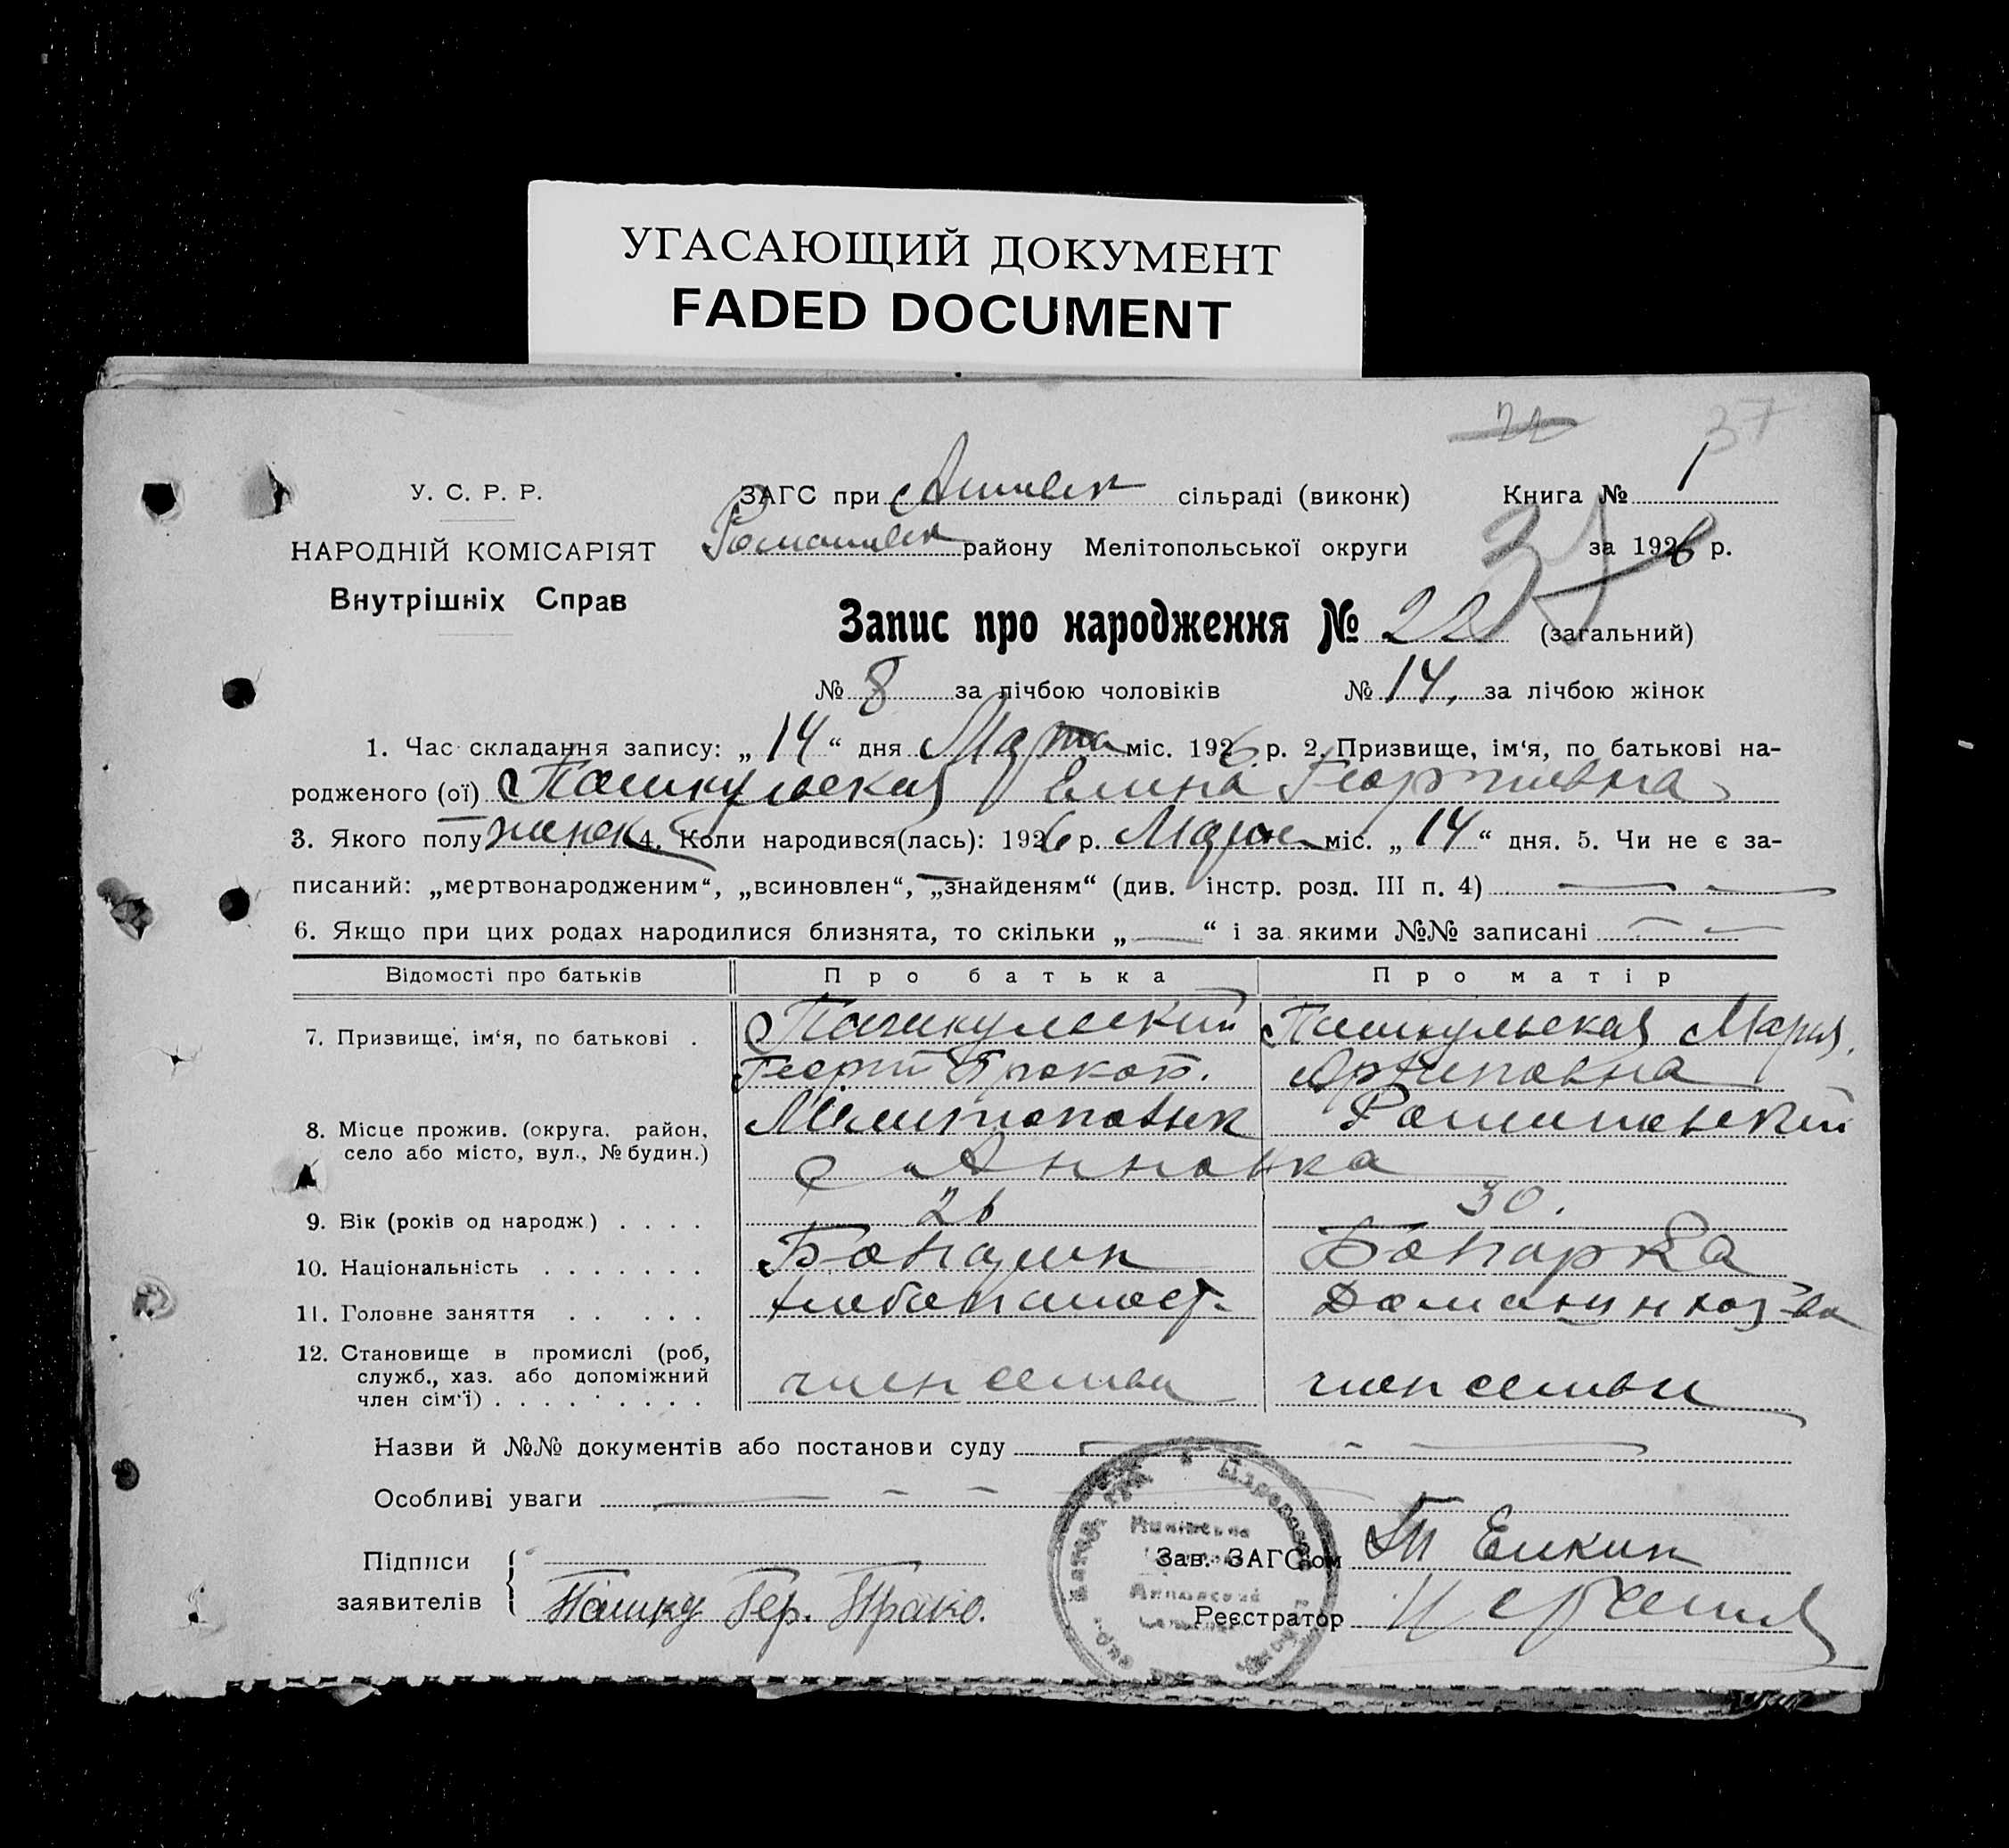 УГАСАЮЩИЙ ДОКУМЕНТ
FADED DOCUMENT
22 37
У. С. Р. Р.
ЗАГС при сільраді (виконк) Книга № 1
НАРОДНІЙ КОМІСАРІЯТ
району Мелітопольської округи за 1926 р.
Внутрішніх Справ
Запис про народження № 22 (загальний)
№ 8 за лічбою чоловіків № 14, за лічбою жінок
1. Час складання запису: „ 14 “ дня Марта міс. 1926 р. 2. Призвище, ім‘я, по батькові на-
родженого (ої) Пашкульская Елина Георгиевна
3. Якого полу женск 4. Коли народився(лась): 1926 р. Марта міс. „ 14 “ дня. 5. Чи не є за-
писаний: „мертвонародженим“, „всиновлен“, „знайденям“ (див. інстр. розд. III п. 4)
6. Якщо при цих родах народилися близнята, то скільки „ — “ і за якими №№ записані
Відомості про батьків Про батька Про матір
7. Призвище, ім‘я, по батькові . Пашкульский Пашкульская Мария
Георгий Прокоп. Архиповна
8. Місце прожив. (округа, район,
село або місто, вул., № будин.)
с Анновка
9. Вік (років од народж.) . . . . 26 30.
10. Національність . . . . . . . Болгарка
11. Головне заняття . . . . . хлебопашест.
12. Становище в промислі (роб,
служб., хаз. або допоміжний
член сім‘ї) . . . . . . . . . член семьи член семьи
Назви й №№ документів або постанови суду
Особливі уваги
Підписи Зав. ЗАГС‘ом Елкин
заявителів Пашку Гер. Прако. Реєстратор